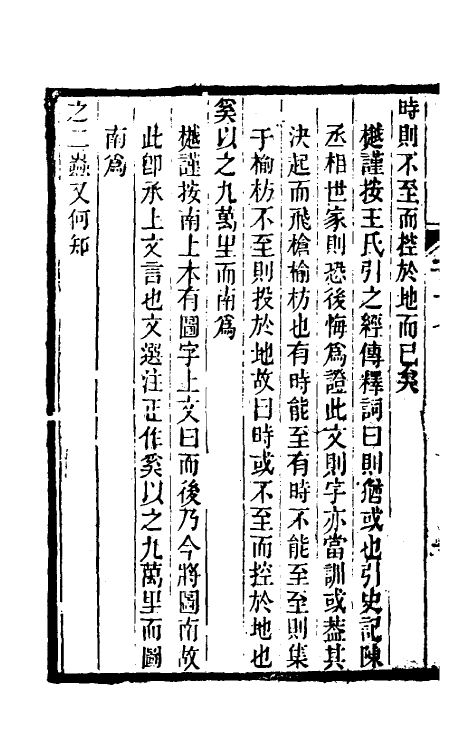 時則不至而控於地而已矣
樾謹按王氏引之經傳釋詞曰則猶或也引史記陳
丞相世家則恐後悔為證此文則字亦當訓或葢其
決起而飛槍榆枋也有時能至有時不能至至則集
于榆枋不至則投於地故曰時或不至而控於地也
奚以之九萬里而南為
樾謹按南上本有圖字上文曰而後乃今將圖南故
此卽承上文言也文選注正作奚以之九萬里而圖
南為
之二蟲又何知